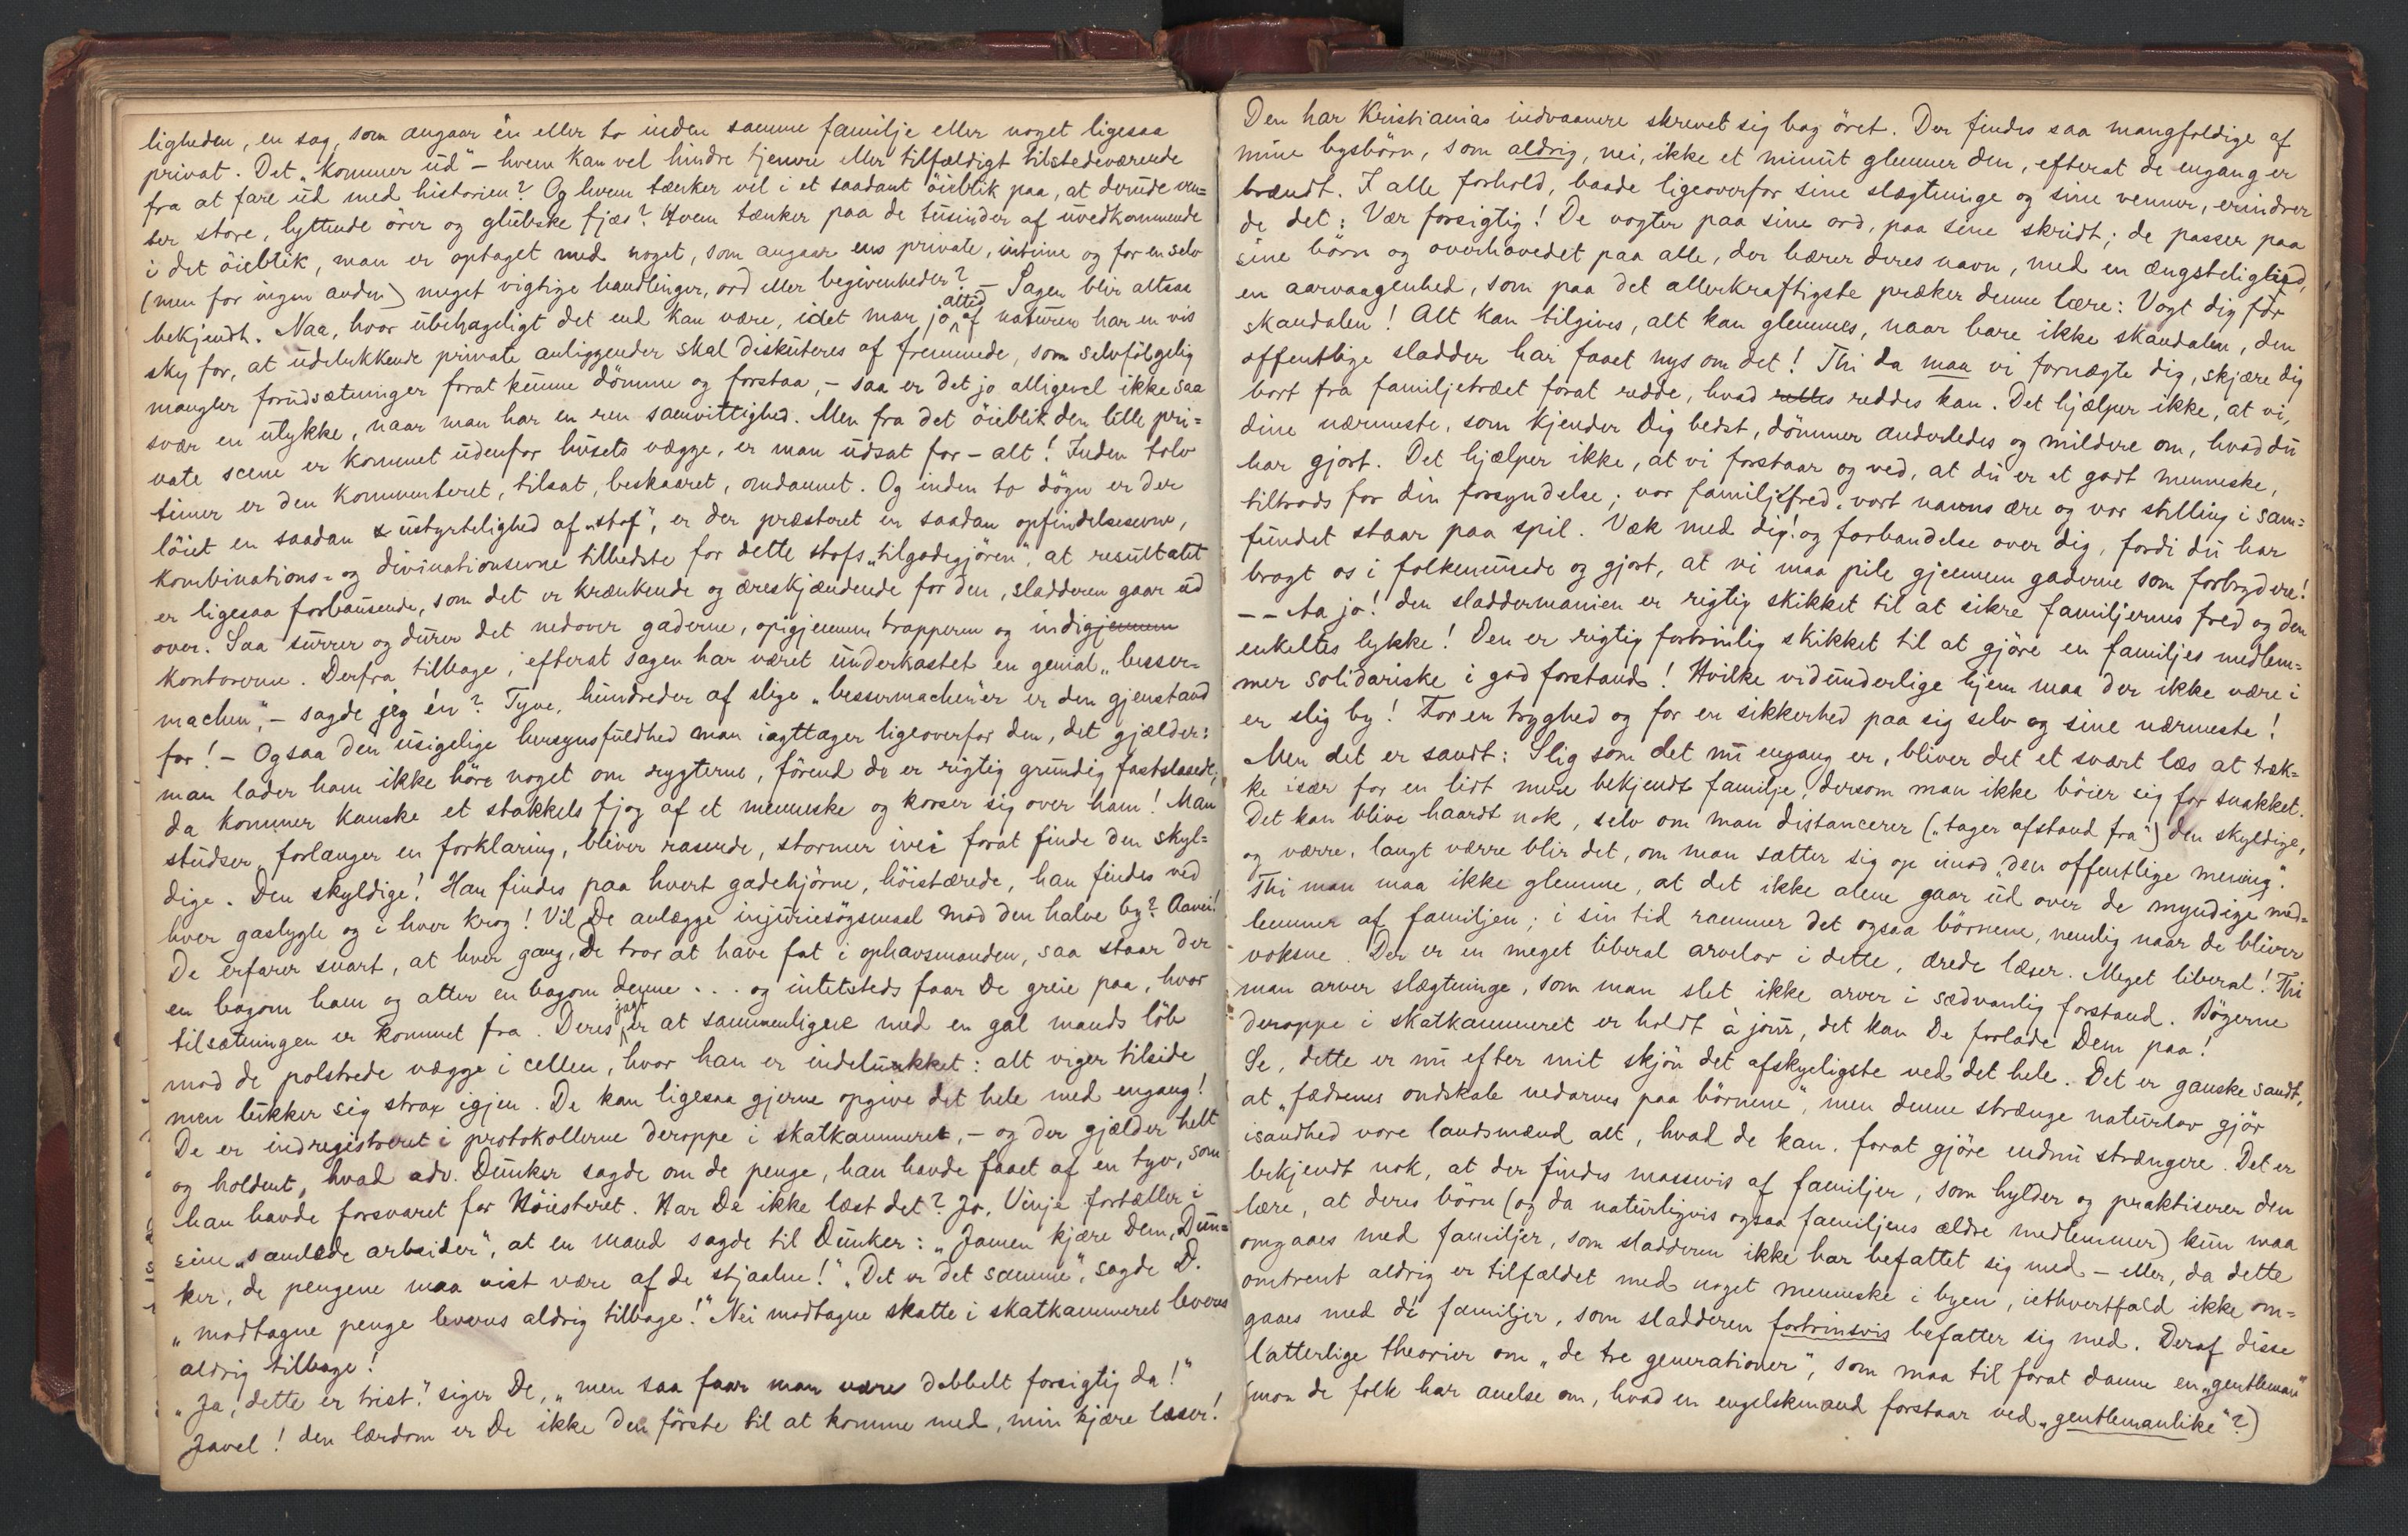 ligheden, en sag, som angaar én eller to inden samme familje eller noget ligesaa
privat. Det „kommer ud" – hvem kan vel hindre tjenere eller tilfældigt tilstedeværende
fra at fare ud med historien? Og hvem tænker vel i et saadant öieblik paa, at derude ven=
ter store, lyttende örer og glubske fjæs? Hvem tænker paa de tusinder af uvedkommende
i det öieblik, man er optaget med noget, som angaar ens private, intime og for en selv
(men for ingen anden) meget vigtige handlinger, ord eller begivenheder? – Sagen blir altsaa
bekjendt. Naa, hvor ubehageligt det end kan være, idet man jo altid af naturen har en vis
sky for, at udelukkende private anliggender skal diskuteres af fremmede, som selvfölgelig
mangler forudsætninger forat kunne dömme og forstaa, – saa er det jo alligevel ikke saa
svær en ulykke, naar man har en ren samvittighed. Men fra det öieblik den lille pri=
vate scene er kommet udenfor husets vægge, er man udsat for – alt! Inden tolv
timer er den kommenteret, tilsat, beskaaret, omdannet. Og inden to dögn er der
löiet en saadan ustyrtelighed af „stof", er der præsteret en saadan opfindelsesevne,
kombinations= og divinationsevne tilbedste for dette stofs „tilgodegjören", at resultatet
er ligesaa forbausende, som det er krænkende og æreskjændende for den, sladderen gaar ud
over. Saa surrer og durer det nedover gaderne, opigjennem trapperne og indigjennem
kontorerne. Derfra tilbage, efterat sagen har været underkastet en genial „besser=
machen", – sagde jeg én? Tyve, hundreder af slige „bessermachen"er er den gjenstand
for! – Ogsaa den usigelige hensynsfuldhed man iagttager ligeoverfor den, det gjælder:
man lader ham ikke höre noget om rygterne, förend de er rigtig grundig fastslaaede;
da kommer kanske et stakkels fjog af et menneske og korser sig over ham! Man
studser, forlanger en forklaring, bliver rasende, stormer ivei forat finde den skyl=
dige. Den skyldige! Han findes paa hvert gadehjörne, höistærede, han findes ved
hver gaslygte og i hver krog! Vil De anlægge injuriesögsmaal mod den halve by? Aanei!
De erfarer snart, at hver gang, De tror at have fat i ophavsmanden, saa staar der
en bagom ham og atter en bagom denne . . . og intetsteds faar De greie paa, hvor
tilsætningen er kommet fra. Deres jagt er at sammenligne med en gal mands löb
mod de polstrede vægge i cellen, hvor han er indelukket: alt viger tilside
men lukker sig strax igjen. De kan ligesaa gjerne opgive det hele med engang!
De er indregistreret i protokollerne deroppe i skatkammeret, – og der gjælder helt
og holdent, hvad adv. Dunker sagde om de penge, han havde faaet af en tyv, som
han havde forsvaret for Höiesteret. Har De ikke læst det? Jo, Vinje fortæller i
sine „samlede arbeider", at en mand sagde til Dunker: „Jamen kjære Dem, Dun=
ker, de pengene maa vist være af de stjaalne!" „Det er det samme", sagde D.
„modtagne penge leveres aldrig tilbage!" Nei modtagne skatte i skatkammeret leveres
aldrig tilbage!
„Ja, dette er trist." siger De, „men saa faar man være dobbelt forsigtig da!"
Javel! den lærdom er De ikke den förste til at komme med, min kjære læser!
Den har Kristianias indvaanere skrevet sig bag öret. Der findes saa mangfoldige af
mine bysbörn, som aldrig, nei, ikke et minut glemmer den, efterat de engang er
brændt. I alle forhold, baade ligeoverfor sine slægtninge og sine venner, erindrer
de det: Vær forsigtig! De vogter paa sine ord, paa sine skridt; de passer paa
sine börn og overhovedet paa alle, der bærer deres navn, med en ængstelighed,
en aarvaagenhed, som paa det allerkraftigste præker denne lære: Vogt dig for
skandalen! Alt kan tilgives, alt kan glemmes, naar bare ikke skandalen, den
offentlige sladder har faaet nys om det! Thi da maa vi fornægte dig, skjære dig
bort fra familjetræet forat redde, hvad reddes kan. Det hjælper ikke, at vi,
dine nærmeste, som kjender dig bedst, dömmer anderledes og mildere om, hvad du
har gjort. Det hjælper ikke, at vi forstaar og ved, at du er et godt menneske,
tiltrods for din forsyndelse; vor familjefred, vort navns ære og vor stilling i sam=
fundet staar paa spil. Væk med dig! og forbandelse over dig, fordi du har
bragt os i folkemunde og gjort, at vi maa pile gjennem gaderne som forbrydere!
– – Aa jo! den sladdermanien er rigtig skikket til at sikre familjernes fred og den
enkeltes lykke! Den er rigtig fortrinlig skikket til at gjöre en familjes medlem=
mer solidariske i god forstand! Hvilke vidunderlige hjem maa der ikke være i
en slig by! For en tryghed og for en sikkerhed paa sig selv og sine nærmeste!
Men det er sandt: Slig som det nu engang er, bliver det et svært læs at træk=
ke især for en lidt mere bekjendt familje, dersom man ikke böier sig for snakket.
Det kan blive haardt nok, selv om man distancerer („tager afstand fra") den skyldige,
og værre, langt værre blir det, om man sætter sig op imod „den offentlige mening".
Thi man maa ikke glemme, at det ikke alene gaar ud over de myndige med=
lemmer af familjen; i sin tid rammer det ogsaa börnene, nemlig naar de bliver
voksne. Der er en meget liberal arvelov i dette, ærede læser. Meget liberal! Thi
man arver slægtninge, som man slet ikke arver i sædvanlig forstand. Bögerne
deroppe i skatkammeret er holdt à jour, det kan De forlade Dem paa!
Se, dette er nu efter mit skjön det afskyeligste ved det hele. Det er ganske sandt,
at „fædrenes ondskab nedarves paa börnene", men denne strænge naturlov gjör
isandhed vore landsmænd alt, hvad de kan, forat gjöre endnu strængere. Det er
bekjendt nok, at der findes massevis af familjer, som hylder og praktiserer den
lære, at deres börn (og da naturligvis ogsaa familjens ældre medlemmer) kun maa
omgaaes med familjer, som sladderen ikke har befattet sig med – eller, da dette
omtrent aldrig er tilfældet med noget menneske i byen, iethvertfald ikke om=
gaaes med de familjer, som sladderen fortrinsvis befatter sig med. Deraf disse
latterlige theorier om „de tre generationer", som maa til forat danne en „gentleman"
(mon de folk har anelse om, hvad en engelskmand forstaar ved „gentlemanlike"?)